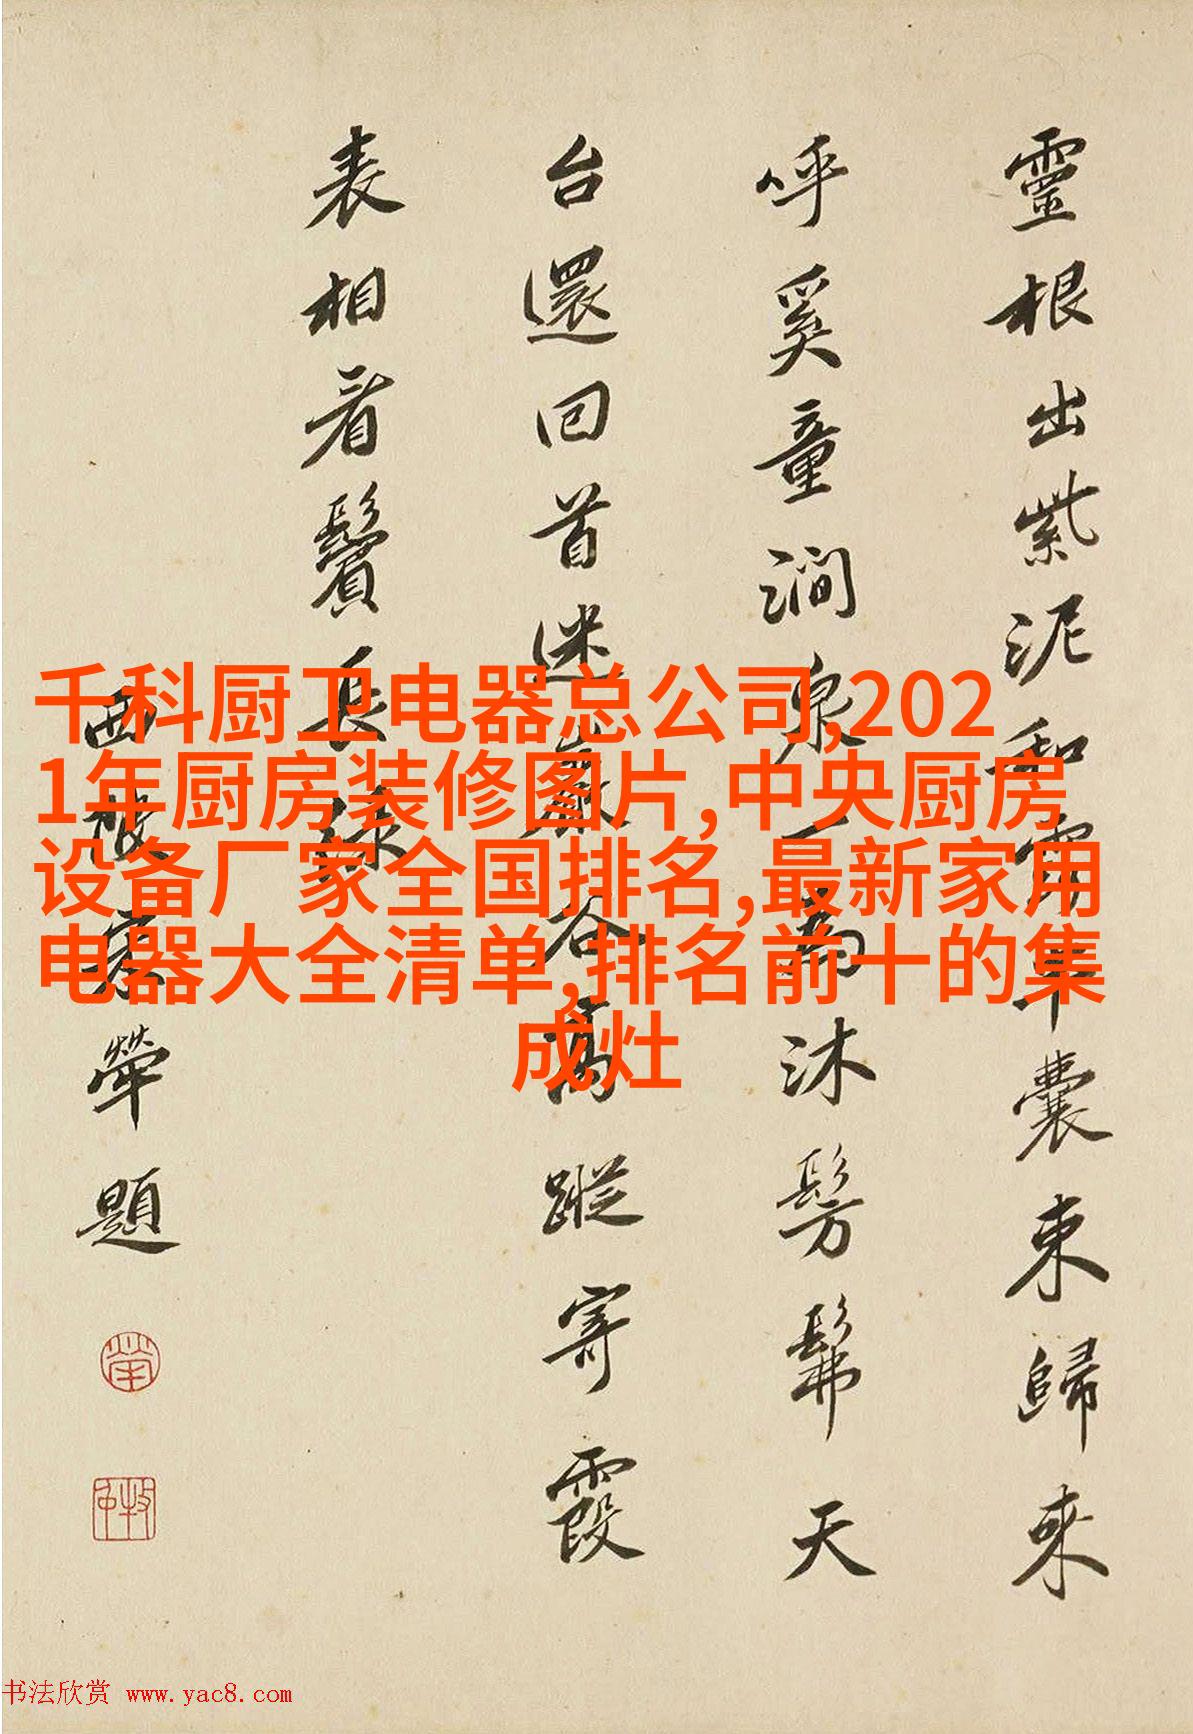 靈根出紫泥和囊束歸來
呼奚童澗泉一為沐髣髴天
台還回首迷巖谷高蹤寄霞
表相看鬢長綠
西陂宋犖題
千科厨卫电器总公司,202
1年厨房装修图片,中央厨房
设备厂家全国排名,最新家用
电器大全清单,排名前十的集
成灶
书法欣赏 www.yac8.com